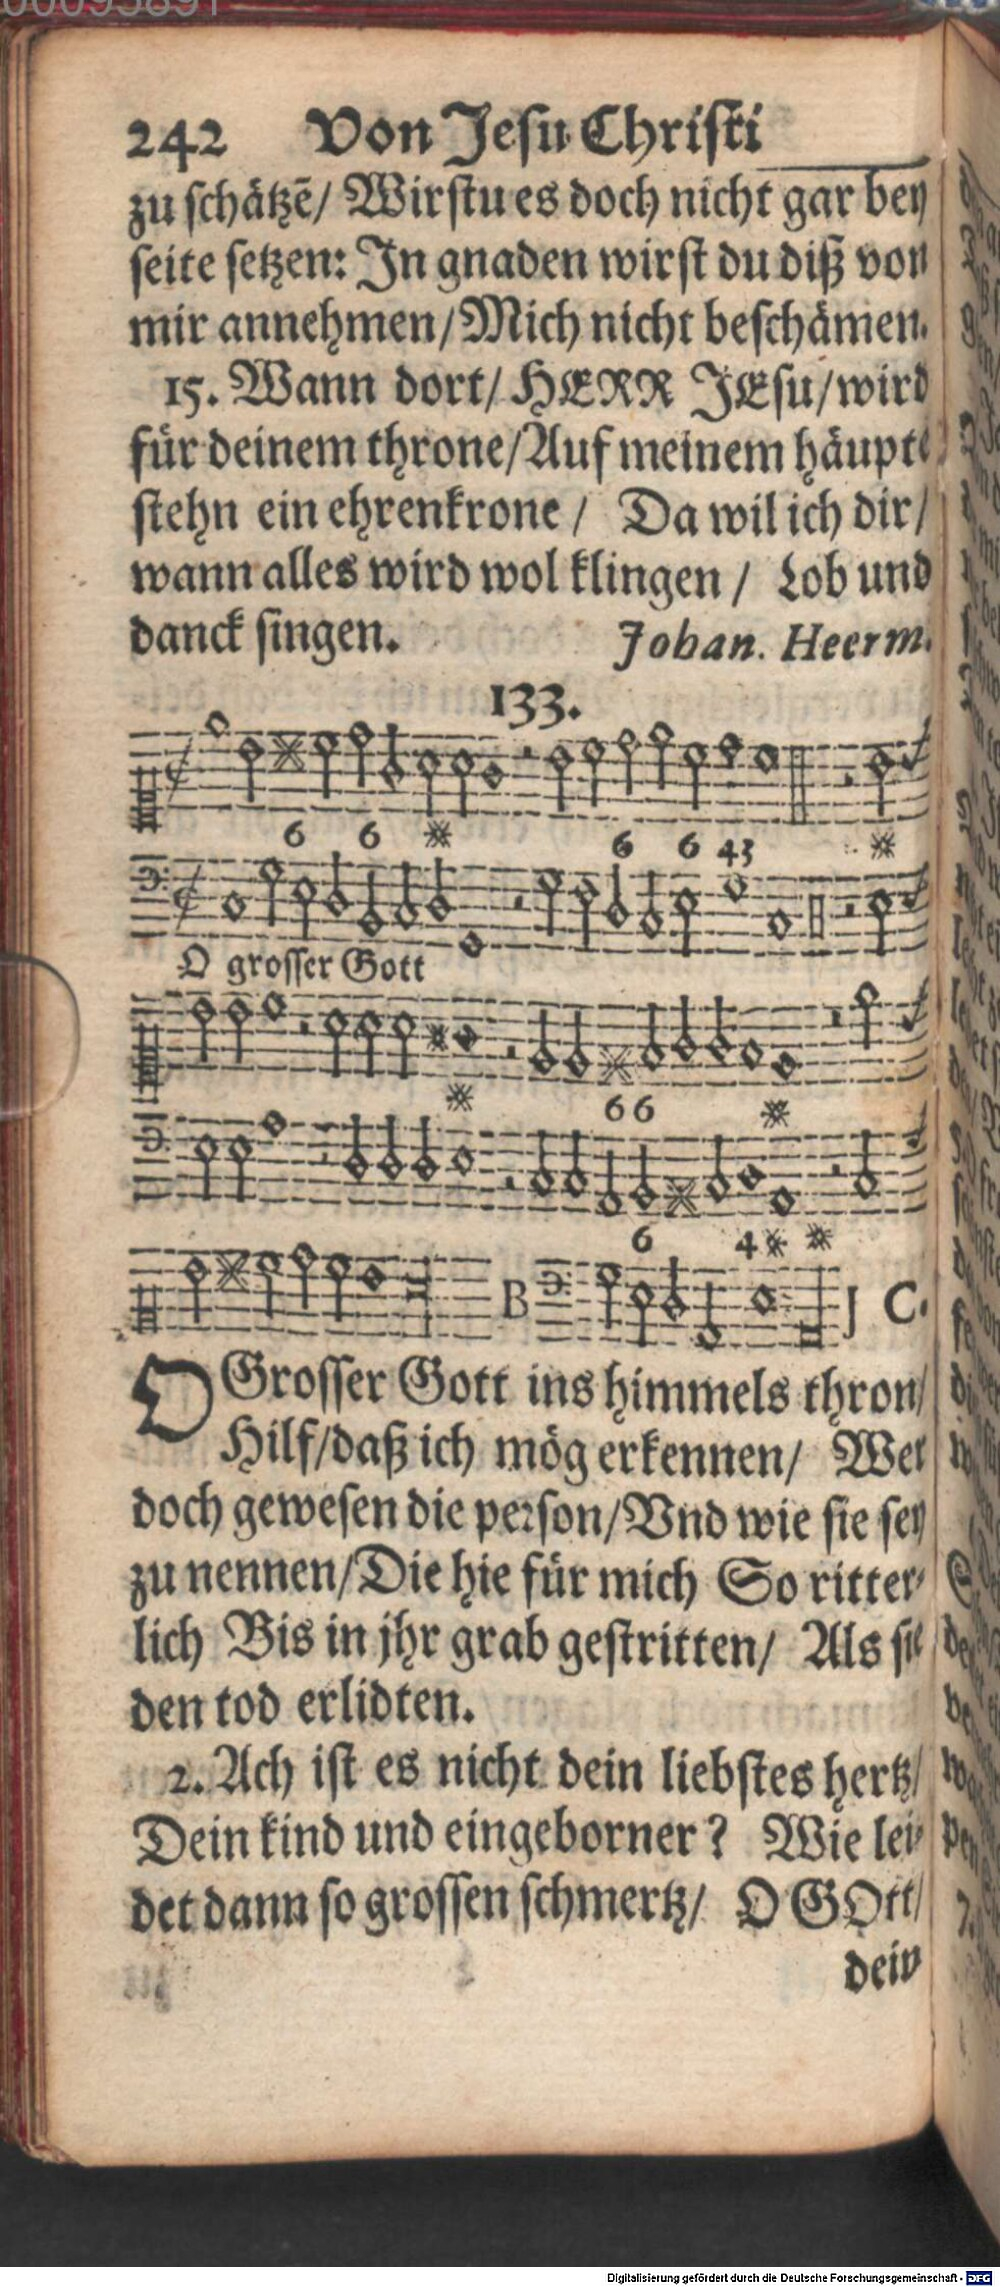 242 Von Jesu Christi
zu schätzē/ Wirstu es doch nicht gar bey
seite setzen: In gnaden wirst du diß von
mir annehmen/ Mich nicht beschämen.
15. Wann dort/ HERR JEsu/ wird
für deinem throne/ Auf meinem häupte
stehn ein ehrenkrone / Da wil ich dir/
wann alles wird wol klingen / Lob und
danck singen. Johan. Heerm.
133.
6 6 6 6 43
O grosser Gott
6 6
6 4
B J C.
O Grosser Gott ins himmels thron/
Hilf/ daß ich mög erkennen/ Wer
doch gewesen die person/ Vnd wie sie sey
zu nennen/ Die hie für mich So ritter-
lich Bis in jhr grab gestritten/ Als sie
den tod erlidten.
2. Ach ist es nicht dein liebstes hertz/
Dein kind und eingeborner? Wie lei-
det dann so grossen schmertz/ O GOtt/
dein
Digitalisierung gefördert durch die Deutsche Forschungsgemeinschaft - DFG